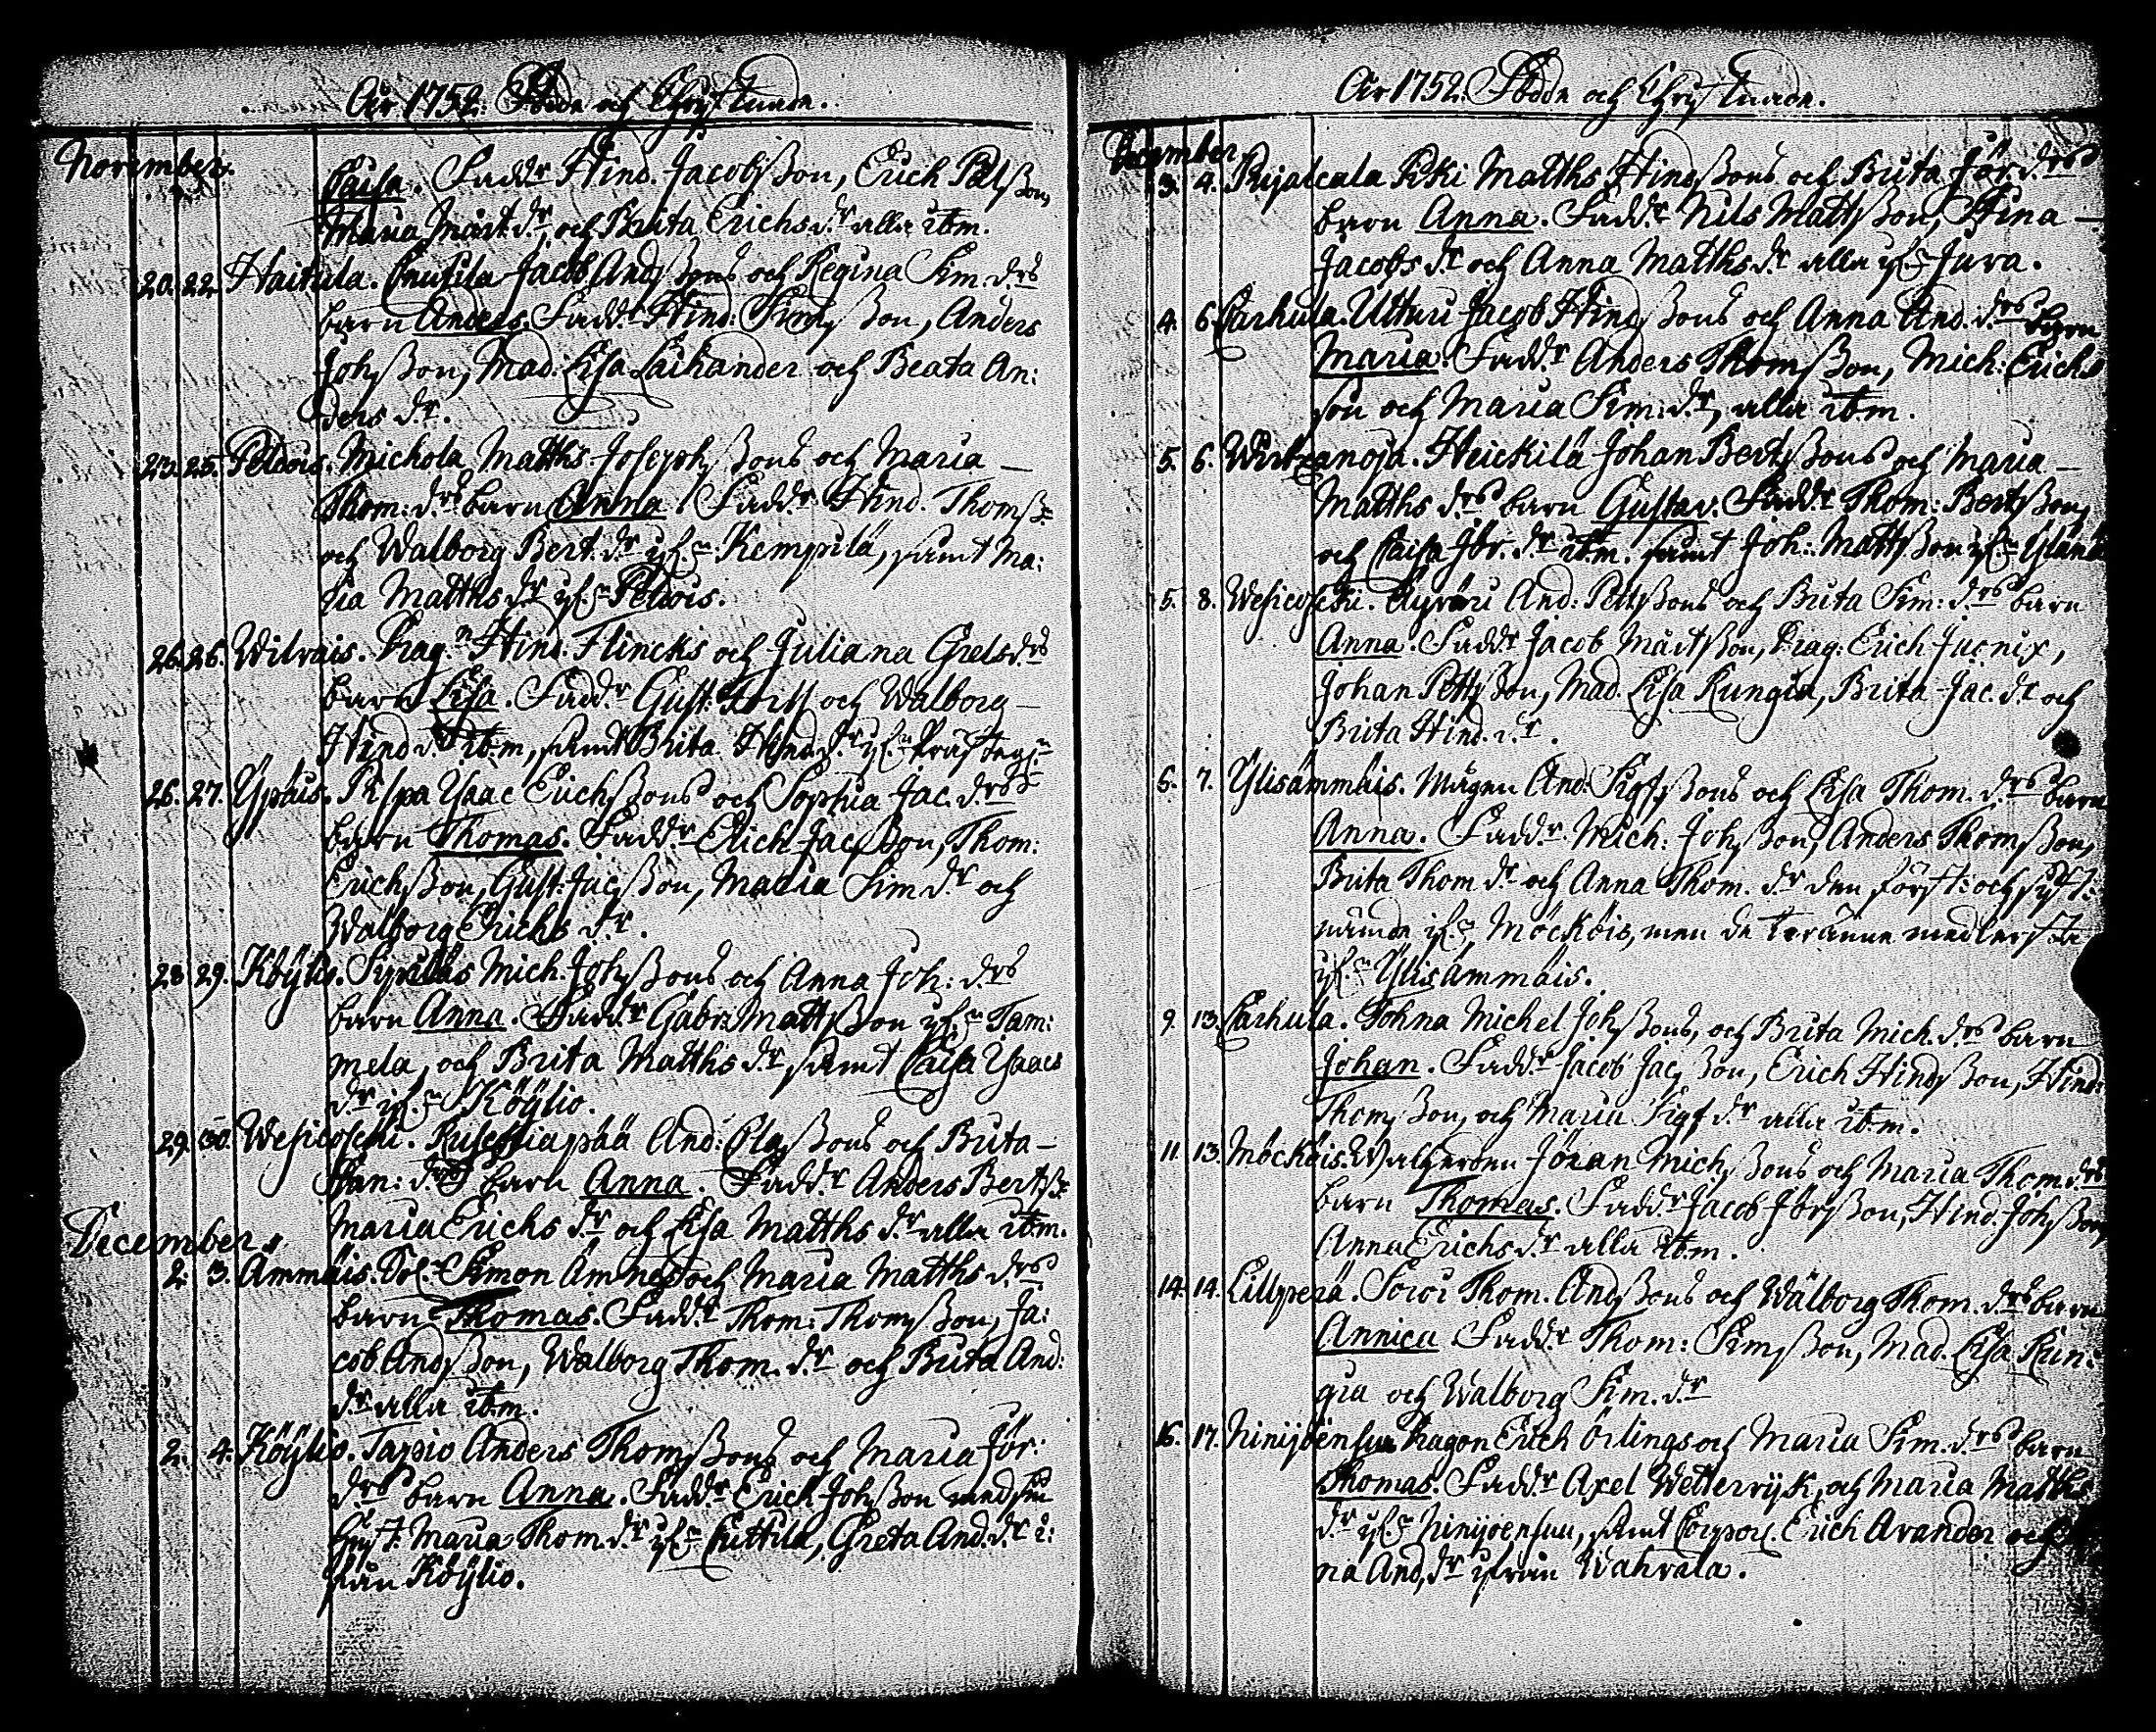 År 1752. Födde och Christnade.
November.
Caisa. Fadd:r Hind. Jacobsson, Erich Påls son,
Maria Mårt. d:r, och Brita Erichs d:r alla ibm.
20. 22. Haitula. Jacob Andssons och Regina Sim. d:rs
barn Anders. Fadd:r Hind: Simsson, Anders
Johsson, Mad: Lisa Laihander och Beata An:
ders d:r.
23. 25. Peldois. Michola Matths Josephssons och Maria
Thom: d:rs barn Anna. Fadd:r Hind. Thomss:
och Walborg Bert. d:r ifr:n Kempilä, samt Ma:
ria Matths d:r ifr:n Peldois.
26. 26. Wilvais. Drag:n Hind. Flincks och Juliana Grels d:rs
barn Lisa. Fadd:r Gust: och Walborg
Hind d:r ibm, samt Brita Hind d:r ifr:n
26. 27. Ypäis. Pispa Ysaac Erichssons och Sophia Jac. d:rs
barn Thomas. Fadd:r Erich Jacsson, Thom:
Erichsson, Gust: Jacsson, Maria Sim d:r och
Walborg Erichs d:r.
28 29. Köÿlio. Sipilas Mich. Johssons och Anna Joh: d:rs
barn Anna. Fadd:r Gabr: Mattsson ifr:n Tam:
mela, och Brita Matths d:r samt Caisa Ysaacs
d:r ifr:n Köÿlio.
29. 30. Wesicoski. And: Olssons och Brita
Stan: d:rs barn Anna. Fadd:r Anders Bertss:
Maria Erichs d:r och Lisa Matths d:r alla ibm.
December.
2. 3. Ammäis. Sol: Simon och Maria Matths d:rs
barn Thomas. Fadd:r Thom: Thomsson, Ja:
cob Andsson, Walborg Thom. d:r och Brita And:
d:r alla ibm.
2. 4. Köÿlio. Tapio Anders Thomssons och Maria Jör.
d:rs barn Anna. Fadd:r Erich Johsson med sin
hust. Maria Thom. d:r ifr:n Cuttila, Greta And. d:r i:
från Köÿlio.
År 1752. Födde och Christnade.
December
3. 4. Kujalcala Pitki Matths Hindssons och Brita Jör. d:rs
barn Anna. Fadd:r Nils Mattsson, Stina
Jacobs d:r och Anna Matths d:r alla ifr:n Jura.
4. 6. Carhula. Utturi Jacob Hindssons och Anna And. d:rs barn
Maria. Fadd:r Anders Thomsson, Mich: Erichs
son och Maria Sim: d:r, alla ibm.
5. 6. Wirtzanoja. Heickilä Johan Bertssons och Maria
Matths d:rs barn Gustav. Fadd:r Thom: Bertsson,
och Caisa Jör. d:r ibm. samt Joh: Mattsson ifr:n Yläne
5. 8. Wesicoski. And: Pettssons och Brita Sim: d:rs barn
Anna. Fadd:r Jacob Mårtsson, Drag: Erich
Johan Pettsson, Mad. Lisa Rungia, Brita Jac. d:r och
Brita Hind. d:r.
6. 7. Ylisämmäis. And: Sigfssons och Lisa Thom. d:rs barn
Anna. Fadd:r Mich: Johsson, Anders Thomsson,
Brita Thom d:r och Anna Thom. d:r den först: och sist:
nämde ifr:n Möcköis, men de teränne medlersta
ifr:n Ylisämmäis.
9. 13. Carhula. Tohna Michel Johssons, och Brita Mich. d:rs barn
Johan. Fadd:r Jacob Jacsson, Erich Hindsson, Hind:
Thomsson, och Maria Sigf d:r alla ibm.
11. 13. Möcköis. Jöran Michssons och Maria Thom. d:rs
barn Thomas. Fadd:r Jacob Jörsson, Hind. Johsson
Anna Erichs d:r alla ibm.
14. 14. Lillperä. Soroi Thom. Andssons och Walborg Thom. d:rs barn
Annica Fadd:r Thom: Simsson, Mad. Lisa Run:
gia och Walborg Sim. d:r
16. 17. Ninijoensuu Dragon Erich Örlings och Maria Sim. d:rs barn
Thomas. Fadd:r Axel Wetterwijk, och Maria Matths
d:r ifr:n Ninijoensuu, samt Corpor: Erich Arander och
na And. d:r ifrån Wahvala.